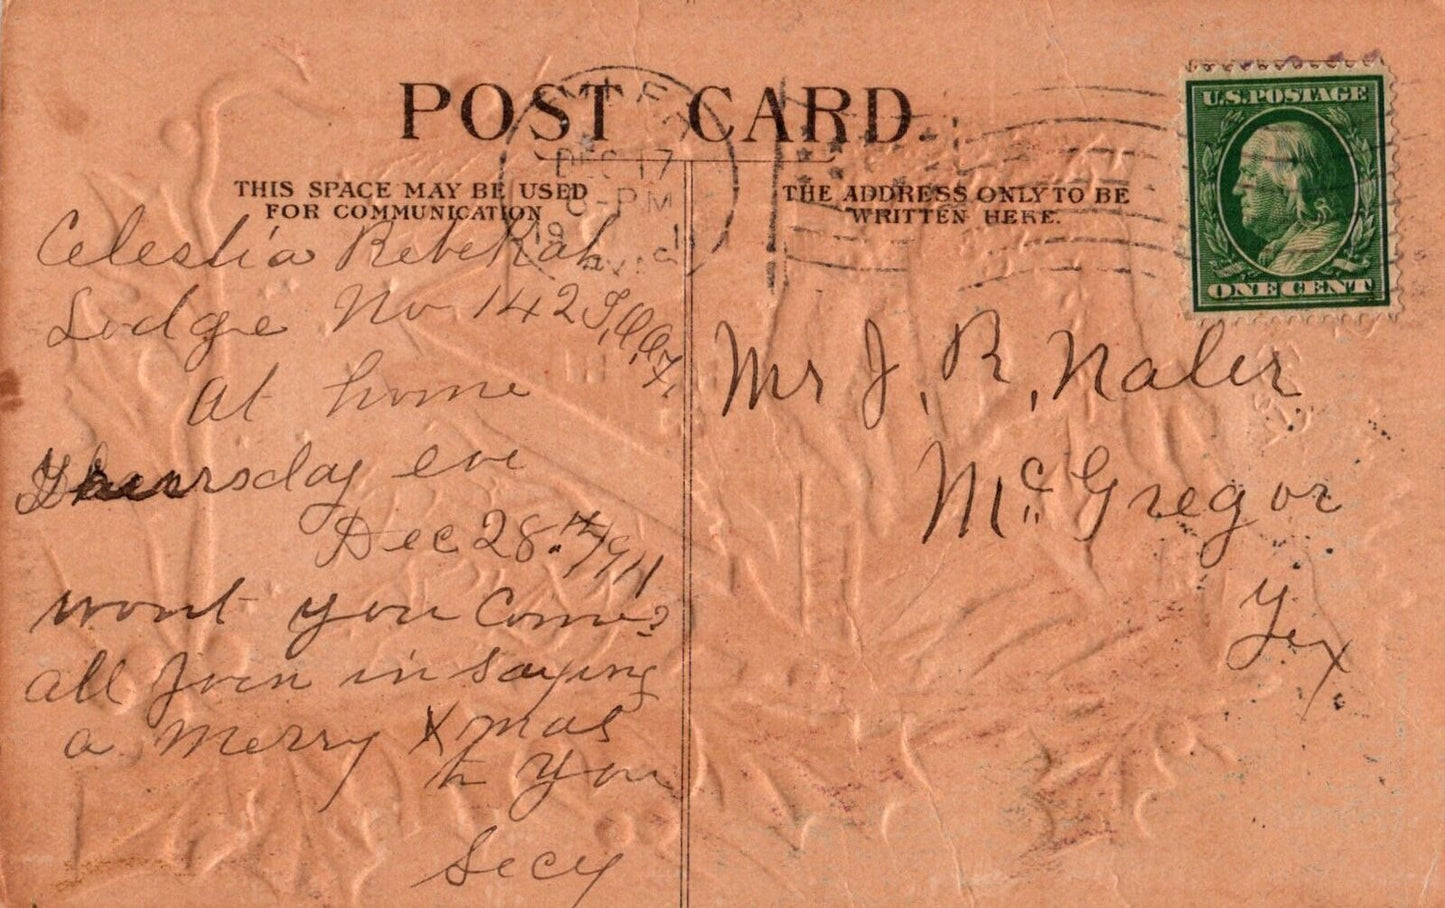 POST CARD.
THIS SPACE MAY BE USED
FOR COMMUNICATION
THE ADDRESS ONLY TO BE
WRITTEN HERE.
U.S. POSTAGE
ONE CENT
DEC 17
-PM
19
Celestia Rebekah
Lodge No 142 I,O,O,F,
At home
Thursday eve
Dec 28.th/1911
wont you Come?
all Join in Saying
a Merry Xmas
to you
Secy
Mr J, R, Naler
McGregor
Tex